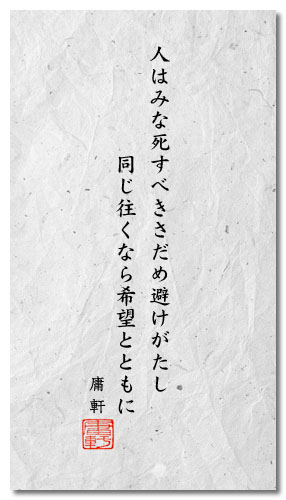 人はみな死すべきさだめ避けがたし
同じ往くなら希望とともに
庸軒